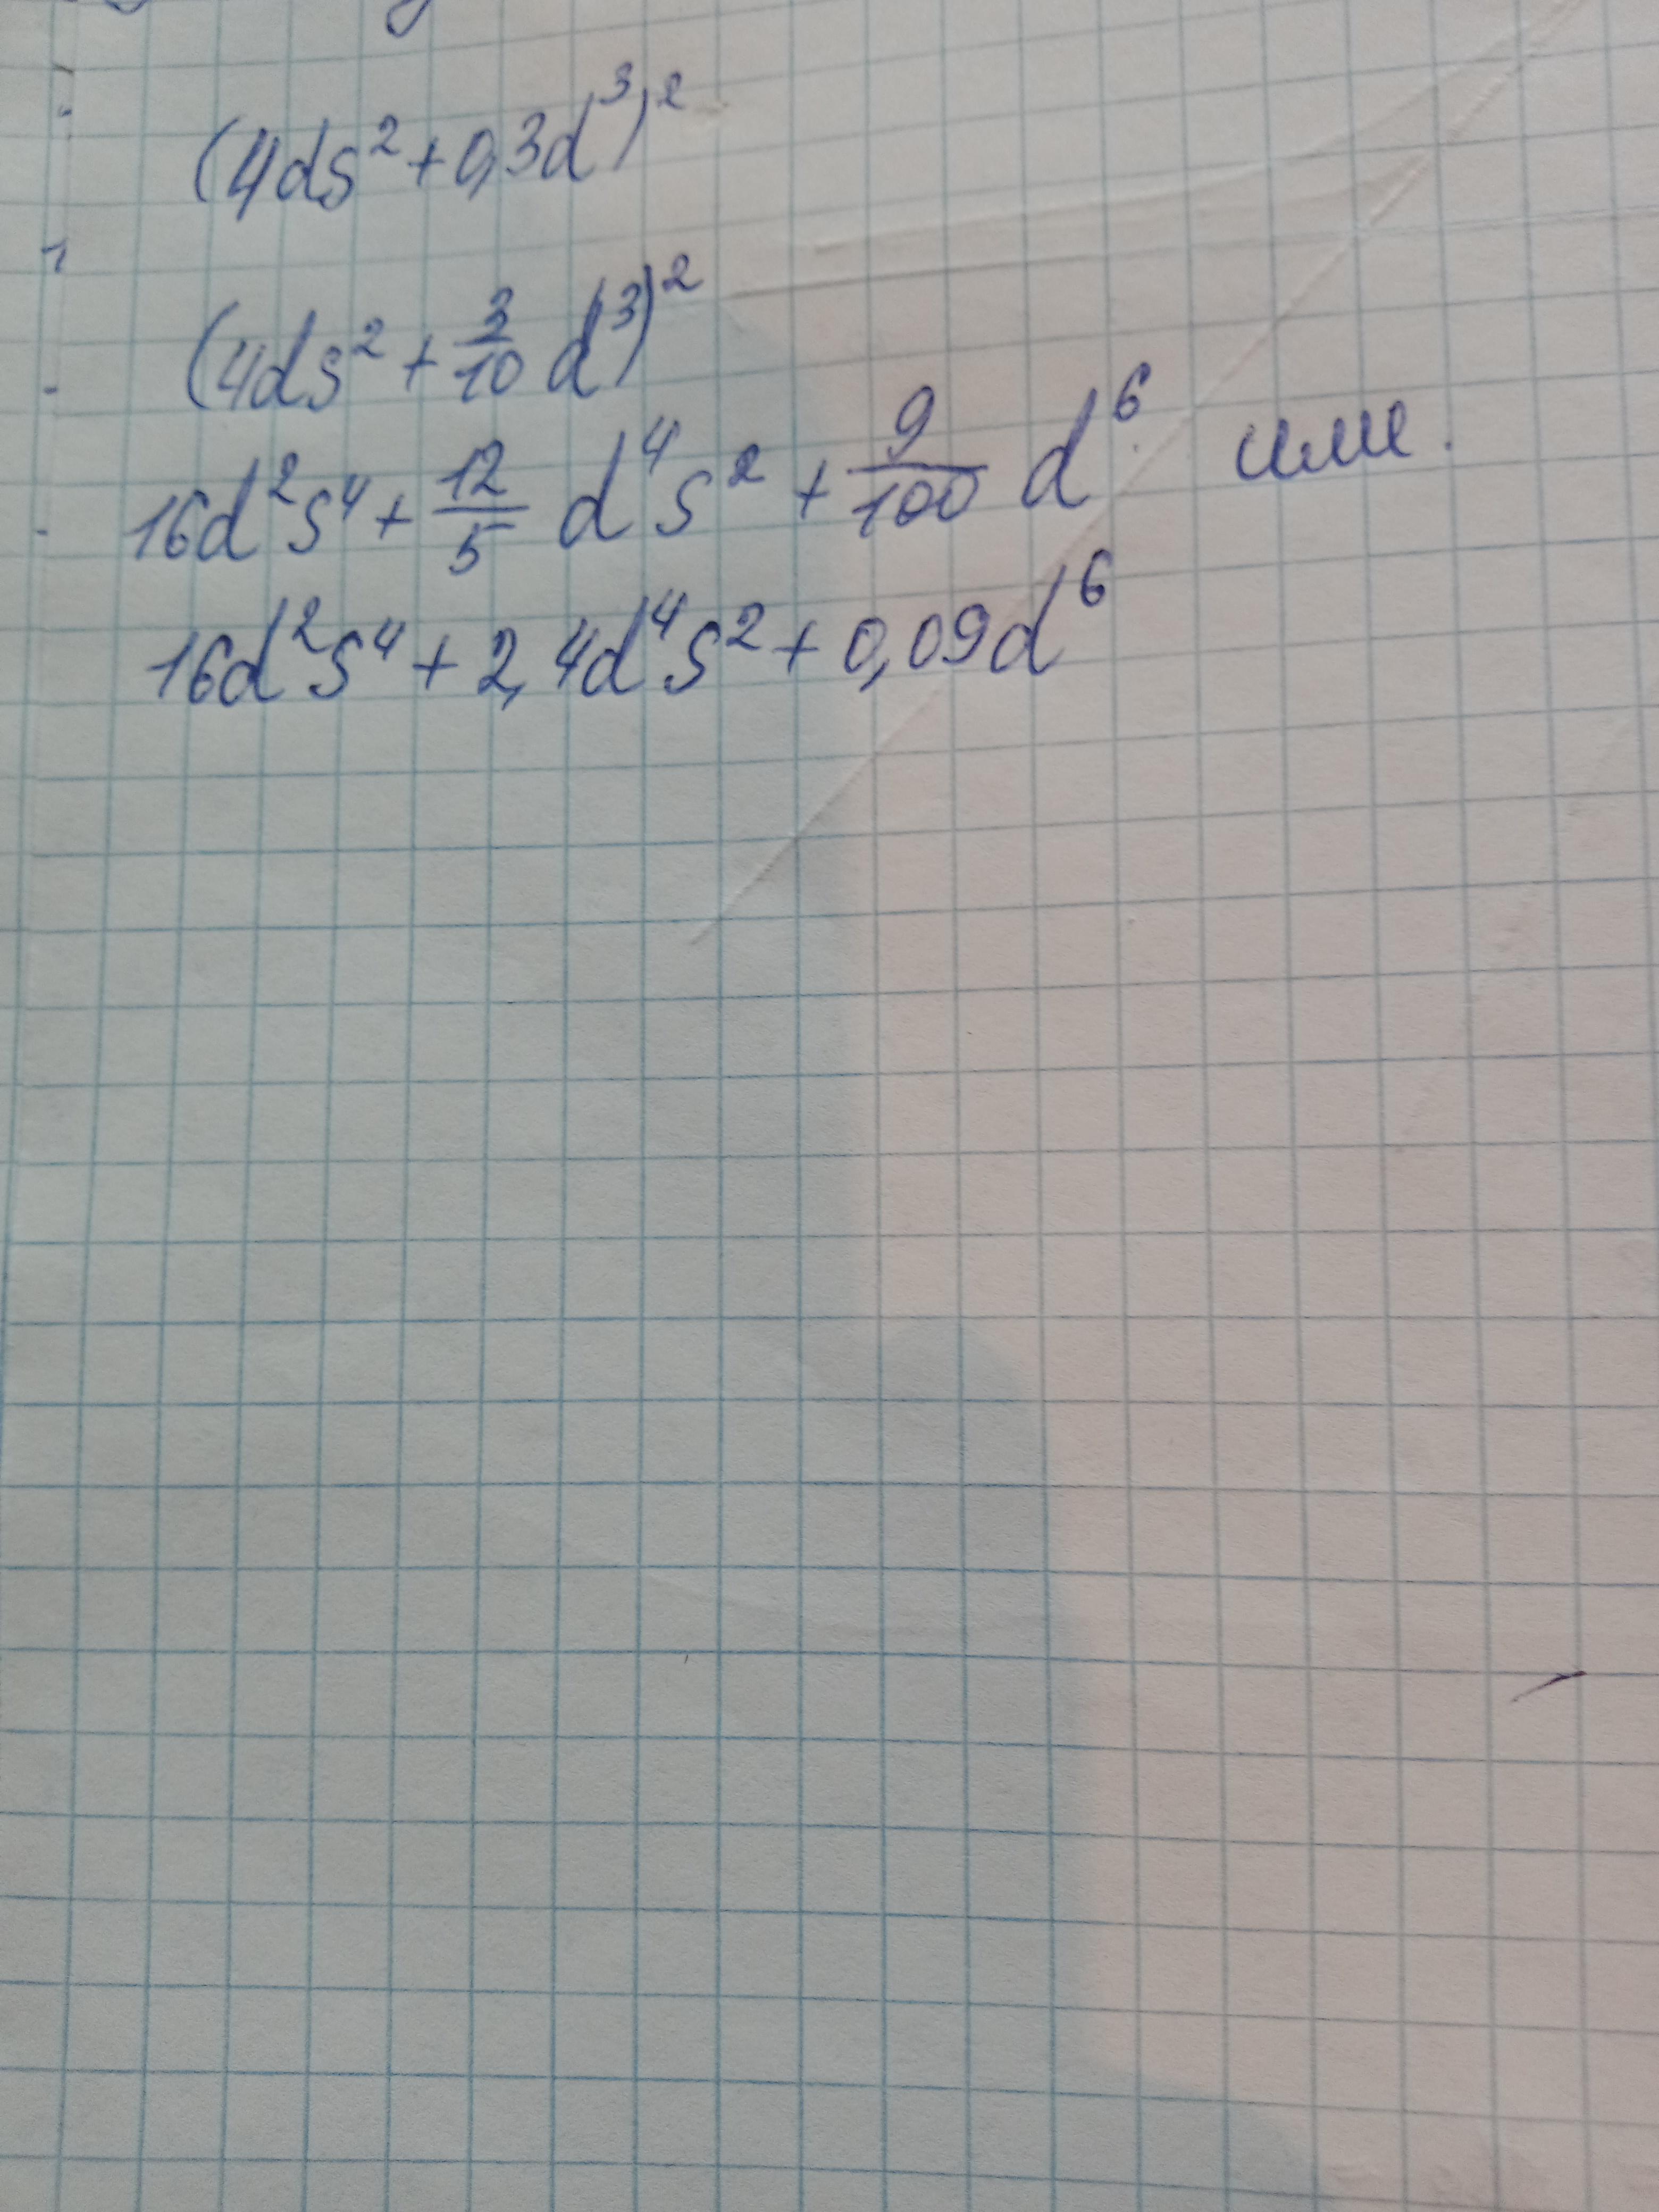 (4ds²+0,3d³)²
(4ds²+3/10 d³)²
16d²s⁴+12/5 d⁴s²+9/100 d⁶ или.
16d²s⁴+2,4d⁴s²+0,09d⁶